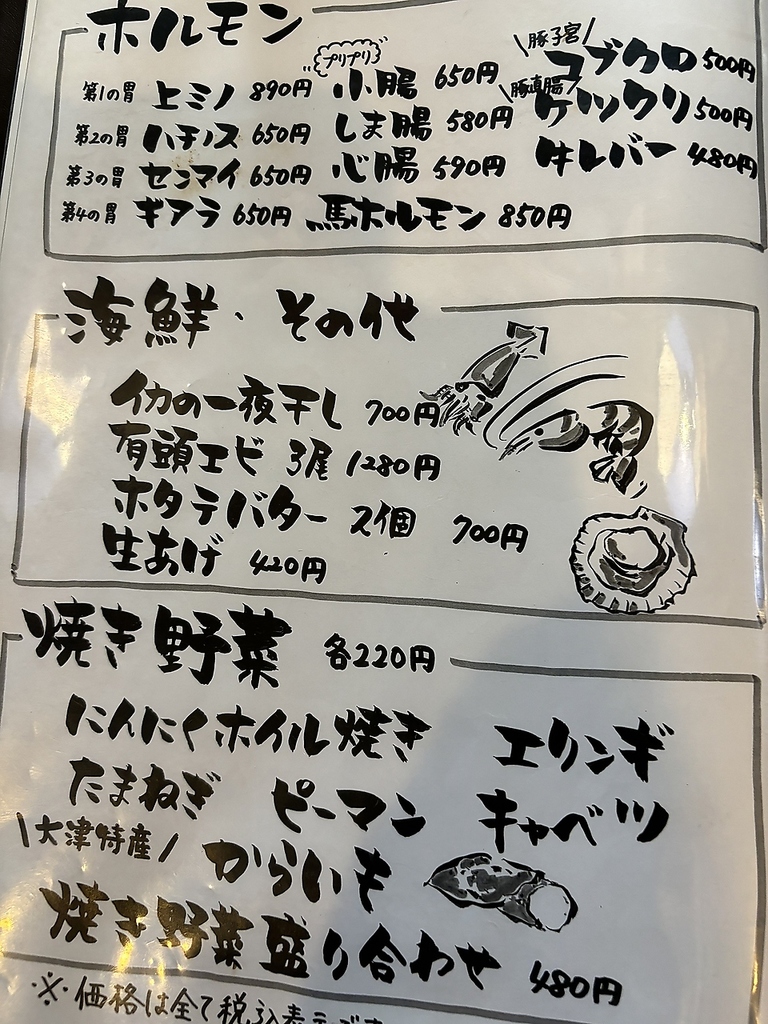 ホルモン
第1の胃 上ミノ 890円
第2の胃 ハチノス 650円
第3の胃 センマイ 650円
第4の胃 ギアラ 650円
プリプリ♪
小腸 650円
しま腸 580円
心腸 590円
馬ホルモン 850円
\豚子宮/
コブクロ 500円
\豚直腸/
ケツクリ 500円
牛レバー 480円
海鮮・その他
イカの一夜干し 700円
有頭エビ 3尾 1280円
ホタテバター 2個 700円
生あげ 420円
焼き野菜 各220円
にんにくホイル焼き エリンギ
たまねぎ ピーマン キャベツ
\大津特産/
からいも
焼き野菜盛り合わせ 480円
※価格は全て税込表示で